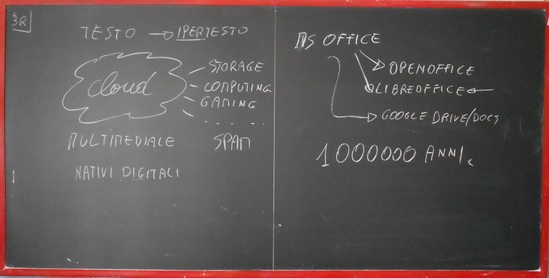 3R
TESTO → IPERTESTO
cloud
STORAGE
COMPUTING
GAMING
. . . . .
MULTIMEDIALE SPAM
NATIVI DIGITALI
MS OFFICE
OPENOFFICE
LIBREOFFICE
GOOGLE DRIVE/DOCS
1000000 ANNI.